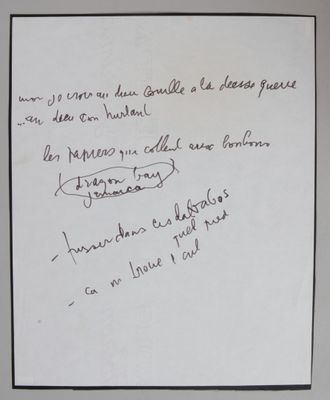 moi je crois au dieu couille a la deesse guerre
...au dieu con hurlant
les papiers qui collent aux bonbons
dragon bay
jamaica
- pisser dans
quel pied
- ca m troue l cul